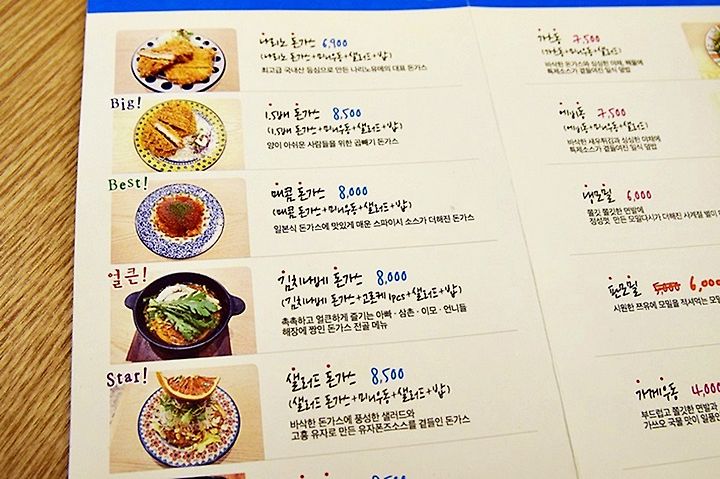 나리노 돈가스 6,900
(나리노 돈가스+미니우동+샐러드+밥)
최고급 국내산 등심으로 만든 나리노유메의 대표 돈가스
Big!
1.5배 돈가스 8,500
(1.5배 돈가스+미니우동+샐러드+밥)
양이 아쉬운 사람들을 위한 곱빼기 돈가스
Best!
매콤 돈가스 8,000
(매콤 돈가스+미니우동+샐러드+밥)
일본식 돈가스에 맛있게 매운 스파이시 소스가 더해진 돈가스
얼큰!
김치나베 돈가스 8,000
(김치나베 돈가스+고로케 1pcs+샐러드+밥)
촉촉하고 얼큰하게 즐기는 아빠·삼촌·이모·언니들
해장에 짱인 돈가스 전골 메뉴
Star!
샐러드 돈가스 8,500
(샐러드 돈가스+미니우동+샐러드+밥)
바삭한 돈가스에 풍성한 샐러드와
고흥 유자로 만든 유자폰즈소스를 곁들인 돈가스
8,500
가츠동 7,500
(가츠동+미니우동+샐러드)
바삭한 돈가스와 싱싱한 야채, 해물에
특제소스가 곁들여진 일식 덮밥
에비동 7,500
(에비동+미니우동+샐러드)
바삭한 새우튀김과 싱싱한 야채에
특제소스가 곁들여진 일식 덮밥
냉모밀 6,000
쫄깃 쫄깃한 면발에
정성껏 만든 모밀다시가 더해진 사계절 별미
판모밀 5,000 6,000
시원한 쯔유에 모밀을 적셔먹는 모밀
가께우동 4,000
부드럽고 쫄깃한 면발과
가쓰오 국물 맛이 일품인